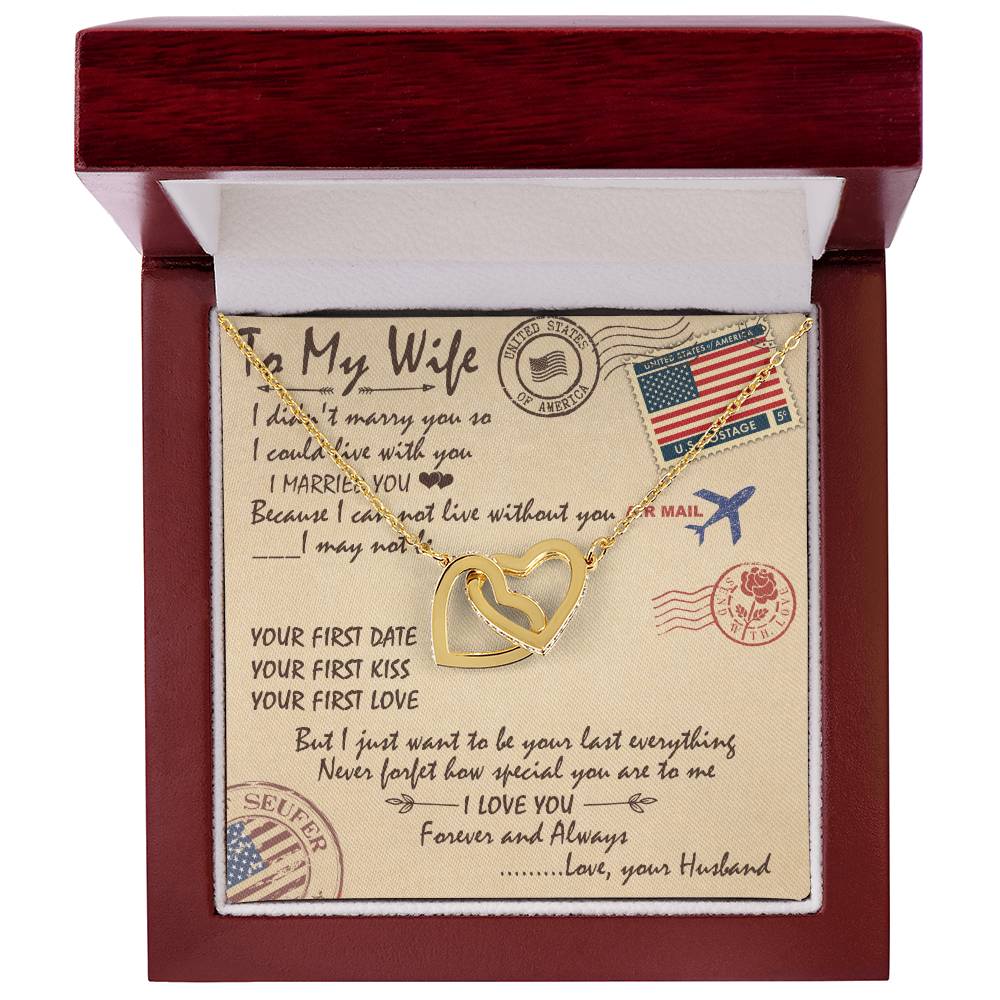 To My Wife
UNITED STATES
OF AMERICA
UNITED STATES of AMERICA
5c
U.S. POSTAGE
I didn't marry you so
I could live with you
I MARRIED YOU
Because I can not live without you
AIR MAIL
___I may not
SEND WITH LOVE
YOUR FIRST DATE
YOUR FIRST KISS
YOUR FIRST LOVE
But I just want to be your last everything
Never forfet how special you are to me
I LOVE YOU
Forever and Always
SEUFER
.........Love, your Husband